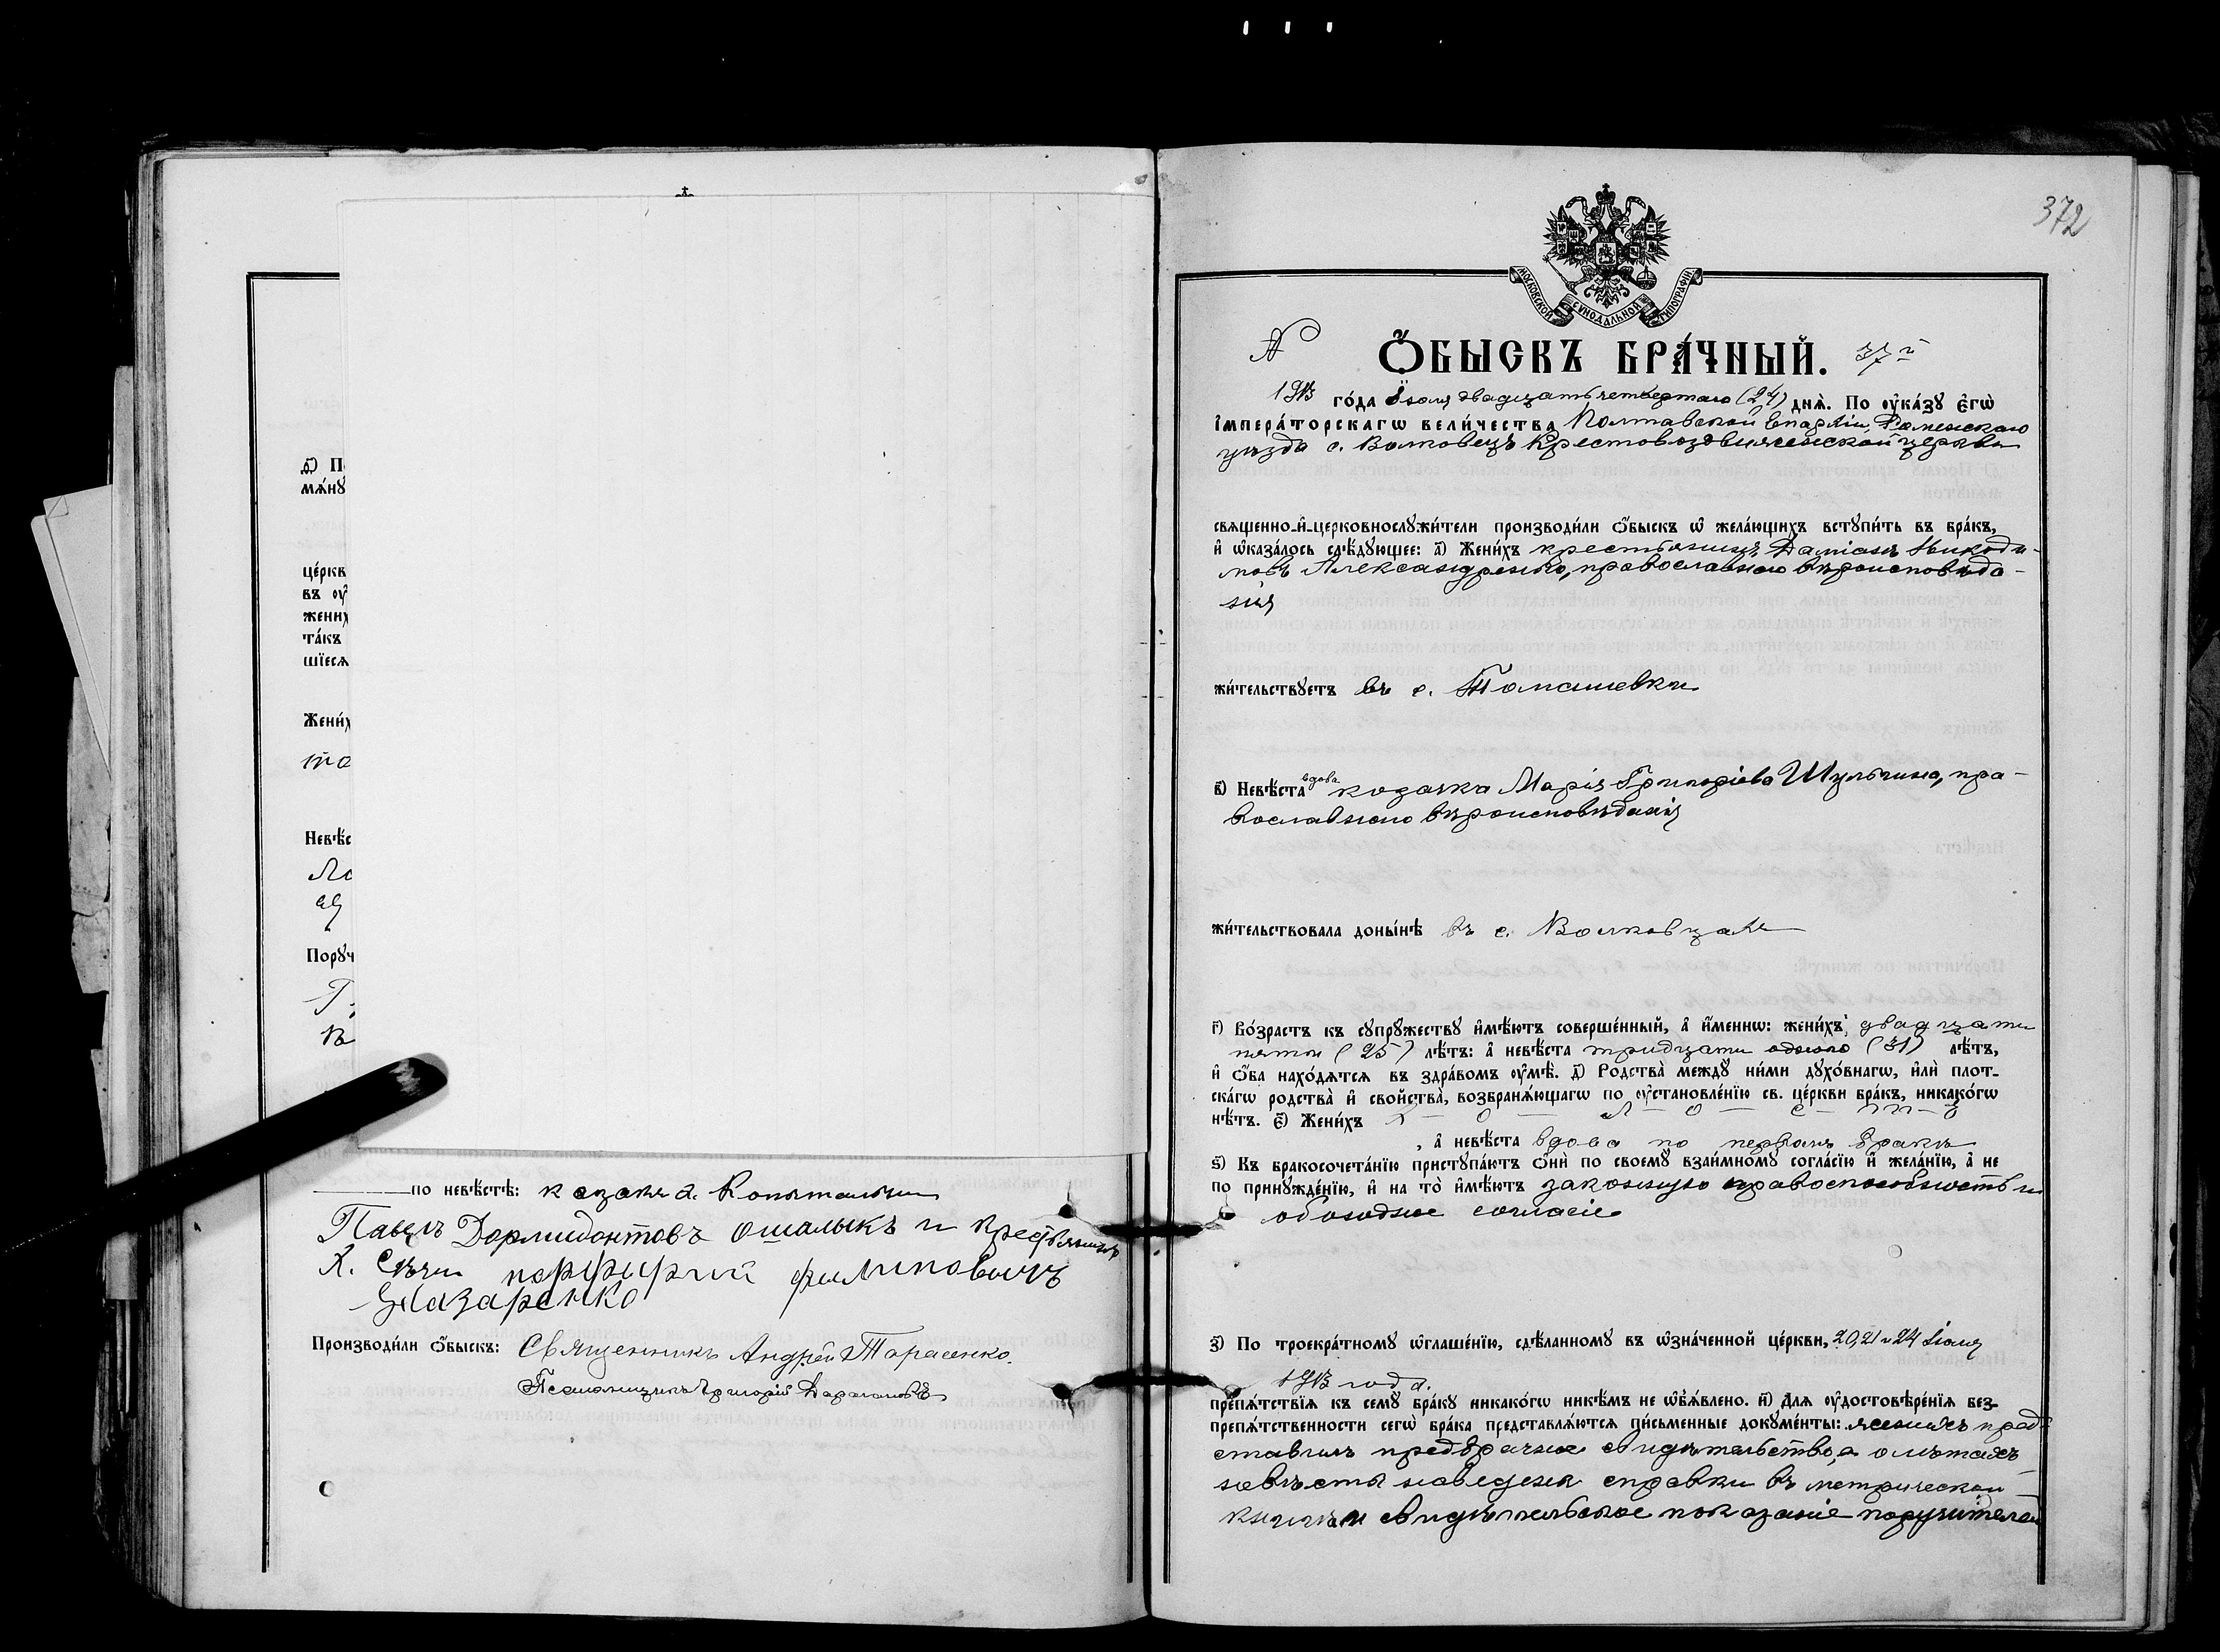 д҃) П
мѧ́нꙋ
це́ркв
въ оу҆
жених
та́къ
шїесѧ
Жени́х
та
Невѣ́с
Ло
Порꙋч
по невѣ́стѣ: козакъ д.
Павелъ Дормидонтовъ Ошалыкъ и крестьянинъ
х. Сѣчи порфирий филиповичъ
Назаренко
Производи́ли ѻ҆́быскъ: Священникъ Андрей Тарасенко.
Псаломщикъ Григорій
372
МОСКОВСКОЙ СѴНОДАЛЬНОЙ ТИПОГРАФІИ
№ Ѻ҆́БЫСКЪ БРА́ЧНЫЙ. 37й
1913 го́да Іюля двадцать четвертаго (24) днѧ̀. По оу҆ка́зꙋ є҆гѡ̀
і҆мпера́торскагѡ вели́чества Полтавской Епархіи, Роменскаго
уѣзда с. Волковецъ Крестовоздвиженской церкви
свѧщенно-и҆-церковнослꙋжи́тели производи́ли ѻ҆́быскъ ѡ҆ жела́ющихъ встꙋпи́ть въ бра́къ,
и҆ ѡ҆каза́лось слѣ́дꙋющее: а҃) Жени́хъ крестьянинъ Даміанъ Никоди-
мовъ Александренко, православнаго вѣроисповѣда-
нія
жи́тельствꙋетъ въ с. Томашевки
в҃) Невѣ́ста вдова козачка Марія Григоріева Шульгина, пра-
вославнаго вѣроисповѣданія
жи́тельствовала доны́нѣ въ с. Волковцахъ
г҃) Во́зрастъ къ сꙋпрꙋ́жествꙋ и҆мѣ́ютъ соверше́нный, а҆ и҆́меннѡ: жени́хъ двадцати
пяти (25) лѣ́тъ: а҆ невѣ́ста тридцати одного (31) лѣ́тъ,
и҆ ѻ҆́ба нахо́дѧтсѧ въ здра́вомъ оу҆мѣ̀. д҃) Родства̀ междꙋ ни́ми дꙋхо́внагѡ, и҆лѝ плот-
ска́гѡ родства̀ и҆ сво́йства̀, возбранѧ́ющагѡ по оу҆становле́нїю св. це́ркви бра́къ, никако́гѡ
нѣ́тъ. є҃) Жени́хъ х – о – л – о – с – т – ъ
, а҆ невѣ́ста вдова по первомъ бракѣ
ѕ҃) Къ бракосочета́нїю пристꙋпа́ютъ ѻ҆нѝ по своемꙋ̀ взаи́мномꙋ согла́сїю и҆ жела́нїю, а҆ не
по принꙋжде́нїю, и҆ на то̀ и҆мѣ́ютъ законную правоспособность и
обоюдное согласіе
з҃) По троекра́тномꙋ ѡ҆глаше́нїю, сдѣ́ланномꙋ въ ѡ҆зна́ченной це́ркви, 20, 21 и 24 Іюля
1913 года.
препѧ́тствїѧ къ семꙋ̀ бра́кꙋ никако́гѡ никѣ́мъ не ѡ҆б̾ѧ́влено. и҃) Длѧ оу҆достовѣре́нїѧ без-
препѧ́тственности сегѡ̀ бра́ка представлѧ́ютсѧ пи́сьменные докꙋме́нты: женихъ пред-
ставилъ предбрачное свидѣтельство, а о лѣтахъ
невѣсты наведена справки въ метрической
книгѣ и свидѣтельское показаніе поручителей